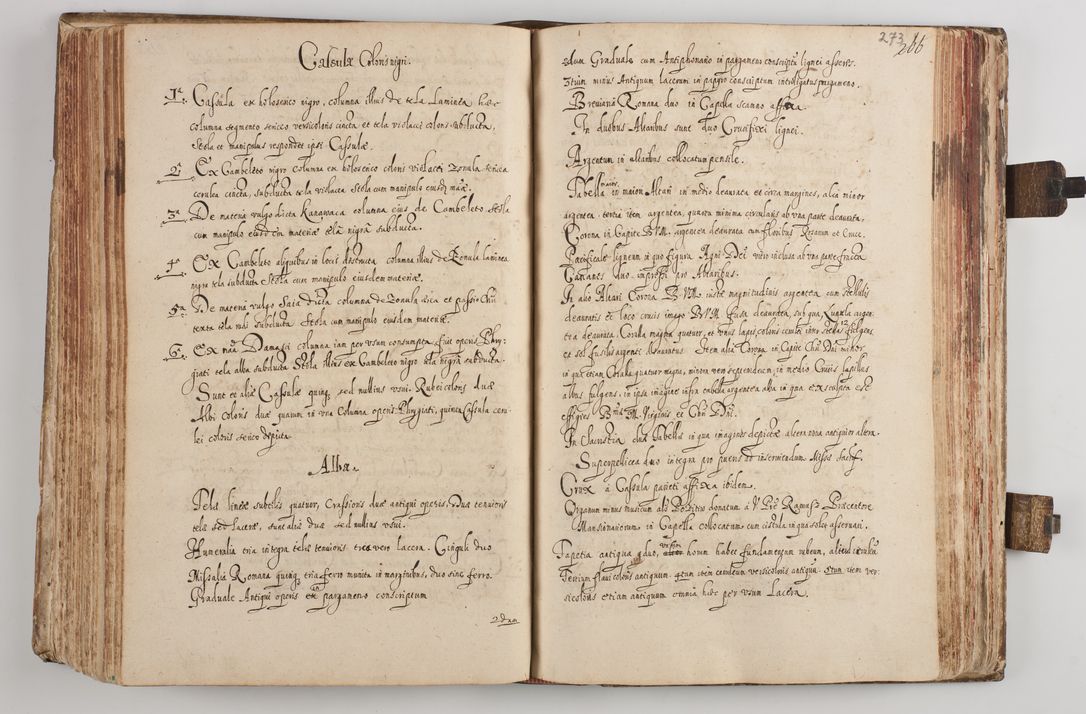 Casulæ Coloris nigri.
1ª Casula ex holoserico nigro, columna illius de tela Laminea hæc
columna segmento serico versicoloris cincta et tela violacei coloris subducta,
Stola et manipulus respondet ipsi Casulæ.
2ª Ex Cambeleto nigro columna ex holoserico coloris violacei Zonula serica
cerulea cincta, subducta tela violacea Stola cum manipulo eiusdem mãæ.
3ª De materia vulgo dicta Kanawaca columna eius de Cambeleto, Stola
cum manipulo eiusdem materiæ tela nigra subducta.
4ª Ex Cambeleto aliquibus in locis distructa columna illius de Zonula laminea
nigra tela subducta Stola cum manipulo eiusdem materiæ.
5ª De materia vulgo Saia dicta columna de Zonula
texta tela rudi subducta Stola cum manipulo eiusdem materiæ.
6ª Ex mãa Damasci columna iam per usum consumpta operis Phry-
giati tela alba subducta Stola illius ex Cambeleto nigro tela nigra subducta.
Sunt et aliæ Casulæ quinq, sed nullius usui. Rubei coloris duæ
Albi coloris duæ quarum in una Columna operis Phrygiati, quinta Casula ceru-
lei coloris serico depicta.
Albæ.
Telæ lineæ subtilis quatuor, Crassioris duæ antiqui operis, Duæ tenuioris
telæ sed laceræ, sunt aliæ duæ sed nullius usui.
Humeralia tria integra telæ tenuioris tres vero lacera. Cinguli duo
Missalia Romana quinq, tria ferro munita in marginibus, duo sine ferro.
Graduale Antiqui operis in pargameno conscriptum
2dum
273 266
2dum Graduale cum Antiphonario in pargameno conscriptũ ligneis asseris.
3tium minus Antiquum lacerum in papyro conscriptum pargameno.
Breviaria Romana duo in Capella scamno affixa.
In duobus Altaribus sunt duo Crucifixi lignei.
Argentum in altaribus collocatum pensile.
Tabella maior in maiori Altari in medio deaurata et circa margines, alia minor
argentea, tertia item argentea, quarta minima circularis ab una parte deaurata.
Corona in Capite B.V.M. argentea deaurata cum floribus Rosarum et Cruce.
Pacificale ligneum in quo figura Agni Dei vitro inclusa ab una parte fracta
Canones duo impressi pro Altaribus.
In alio Altari Corona B.V.M. iustæ magnitudinis argentea cum Stellulis
deauratis et loco crucis imago B.V.M. fusa deaurata, sub qua Lunula argen-
tea deaurata. Coralla magna quatuor, et unus lapis coloris inter stellas fulgens
ex fusilis argenti deauratus. Item alia Corona in Capite Chri Dni minor
in qua etiam Coralla quatuor magna, minora vero in medio Crucis lapillus
albus fulgens, in ipsa imagine infra tabella argentea alba in qua exsculpta est
effigies Bmæ M. Virginis et Chri Dni.
In Sacristia duæ Tabellæ in qua imagines depictæ altera nova antiquior altera.
Superpellicea duo integra pro pueris ad inserviendum Missæ Sacrif.
Crux â Casula parieti affixa ibidem.
Organum minus musicum als Pozitiw donatum a V. Pre Ramusz Præcentore
Mansionariorum in Capella collocatum cum cistula in qua solet asservari.
Tapetia antiqua duo, unum horum habet fundamentum rubeum, aliud
Tertium flavi coloris antiquum. 4tum item eiusdem versicoloris antiqui. 5tum item ver-
sicoloris etiam antiquum omnia hæc per usum Lacera.